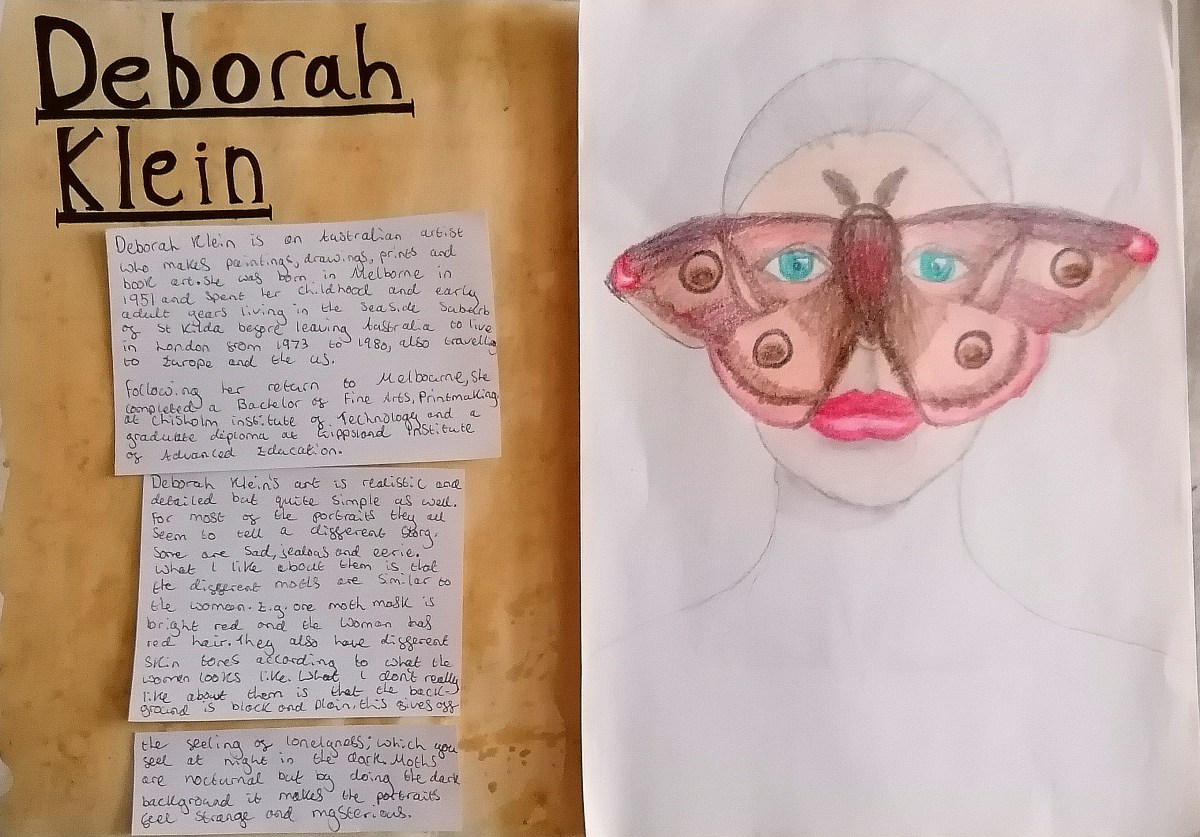 Deborah
Klein
Deborah Klein is an Australian artist
who makes paintings, drawings, prints and
book art. She was born in Melborne in
1951 and spent her childhood and early
adult years living in the seaside suberb
of St Kilda before leaving Australia to live
in London from 1973 to 1980, also travelling
to Europe and the US.
Following her return to Melbourne, she
completed a Bachelor of Fine Arts, Printmaking.
at Chisholm institute of Technology and a
graduate diploma at Gippsland Institute
of Advanced Education.
Deborah Klein's art is realistic and
detailed but quite simple as well.
For most of the portraits they all
seem to tell a different story.
Some are sad, jealous and eerie.
What I like about them is that
the different moths are similar to
the women. E.g. one moth mask is
bright red and the woman has
red hair. They also have different
skin tones according to what the
women looks like. What I don't really
like about them is that the back-
ground is black and plain, this gives off
the feeling of lonelyness; which you
feel at night in the dark. Moths
are nocturnal but by doing the dark
background it makes the portraits
feel strange and mysterious.